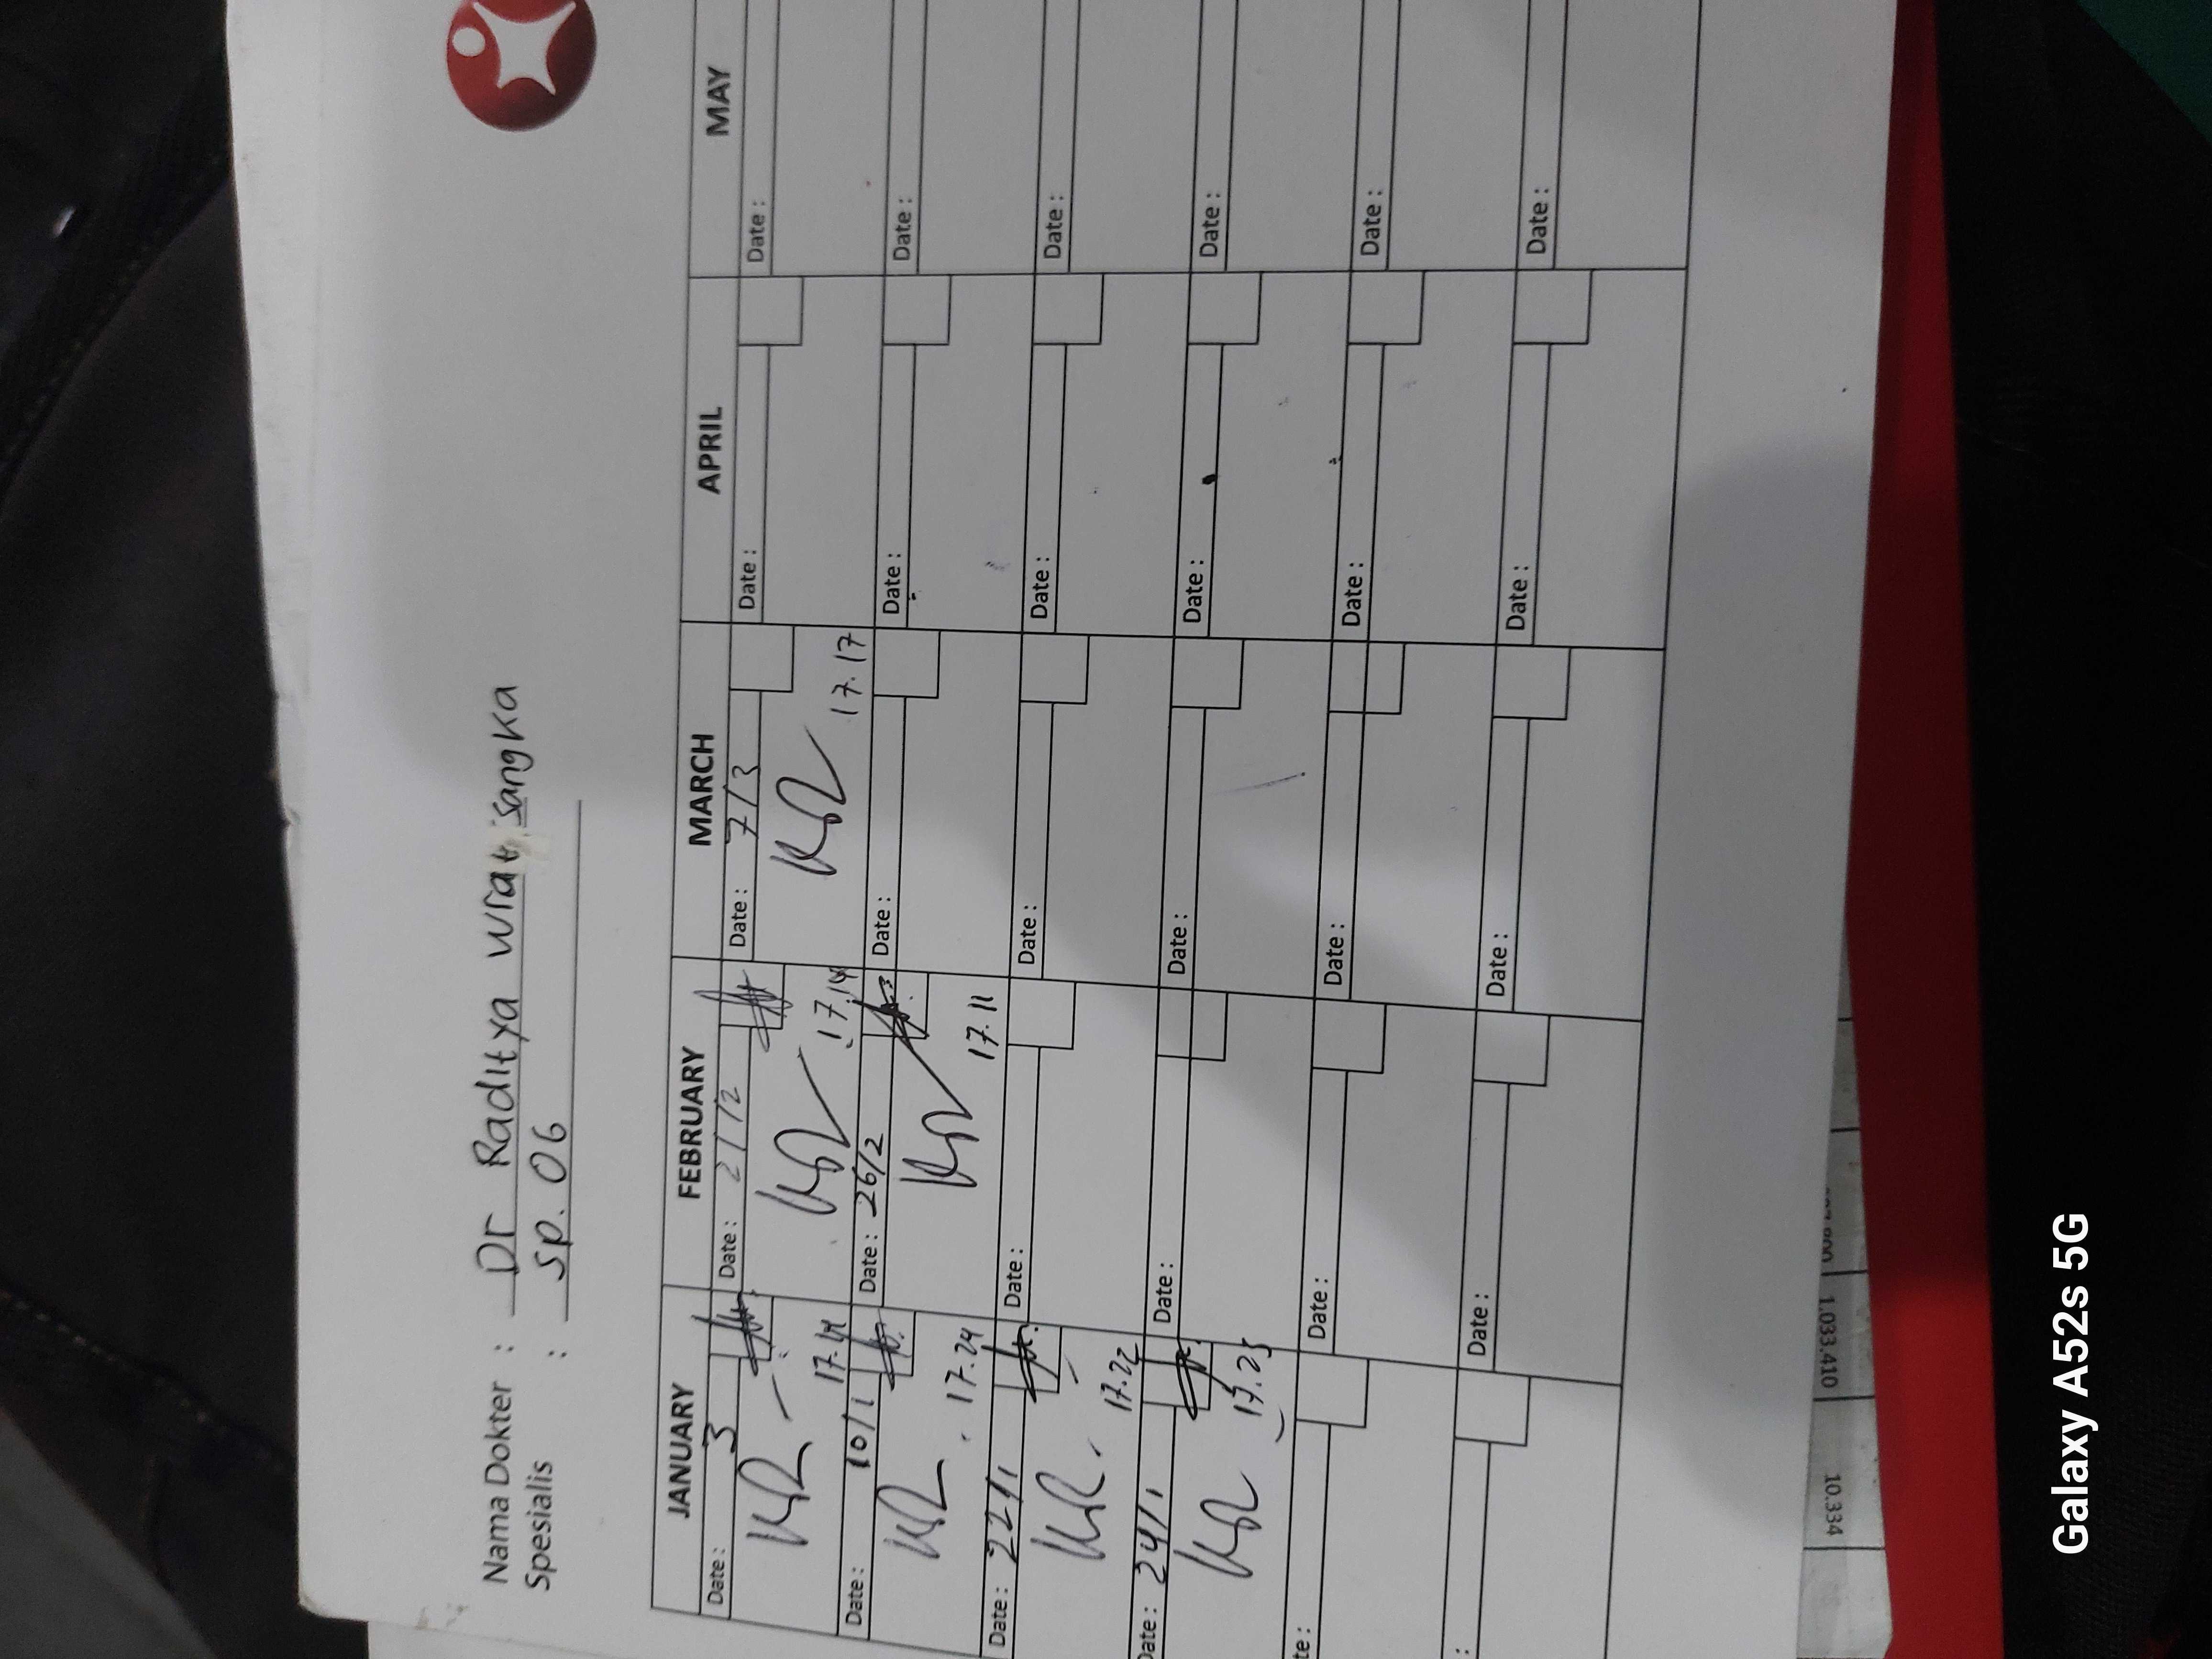 Nama Dokter : Dr Raditya Wratsangka
Spesialis : Sp. OG
JANUARY FEBRUARY MARCH APRIL MAY
Date : 3 Date : 2/2 Date : 7/3 Date : Date :
17.14 17.14 17.17
Date : 10/1 Date : 26/2 Date : Date : Date :
17.24 17.11
Date : 22/1 Date : Date : Date : Date :
17.22
Date : 24/1 Date : Date : Date : Date :
17.25
te : Date : Date : Date : Date :
: Date : Date : Date : Date :
10.334 1.033.410
Galaxy A52s 5G